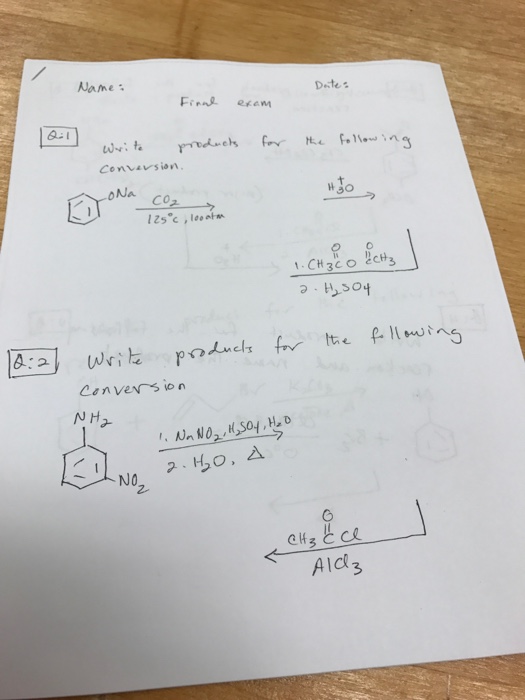 Name:
Date:
Final exam
Q:1
Write products for the following
conversion.
ONa
CO2
125°C, 100atm
H3O+
O O
1. CH3CO CCH3
2. H2SO4
Q:2
Write products for the following
conversion
NH2
NO2
1. NaNO2, H2SO4, H2O
2. H2O, Δ
O
CH3CCl
AlCl3